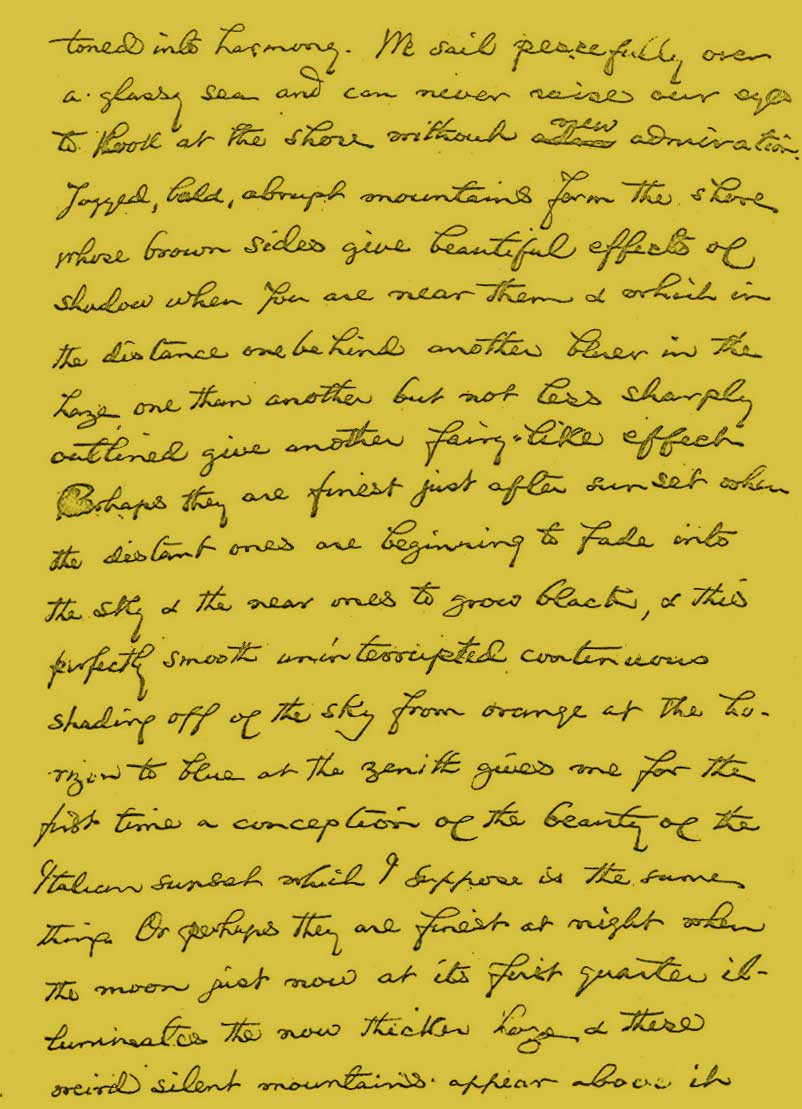 toned into harmony. We sail peacefully over
a glassy sea and can never raise our eyes
to look at the shore without new admiration.
Jagged, bald, abrupt mountains form the shore
whose brown sides give beautiful effects of
shadow when you are near them & which in
the distance one behind another bluer in the
haze one than another but not less sharply
outlined give another fairy-like effect
Perhaps they are finest just after sunset when
the distant ones are beginning to fade into
the sky & the near ones to grow black, & this
perfectly smooth uninterrupted continuous
shading off of the sky from orange at the ho-
rizon to blue at the zenith gives me for the
first time a conception of the beauty of the
Italian sunset which I suppose is the same
thing. Or perhaps they are finest at night when
the moon just now at its first quarter il-
luminates the now thicker haze & these
weird silent mountains appear above it